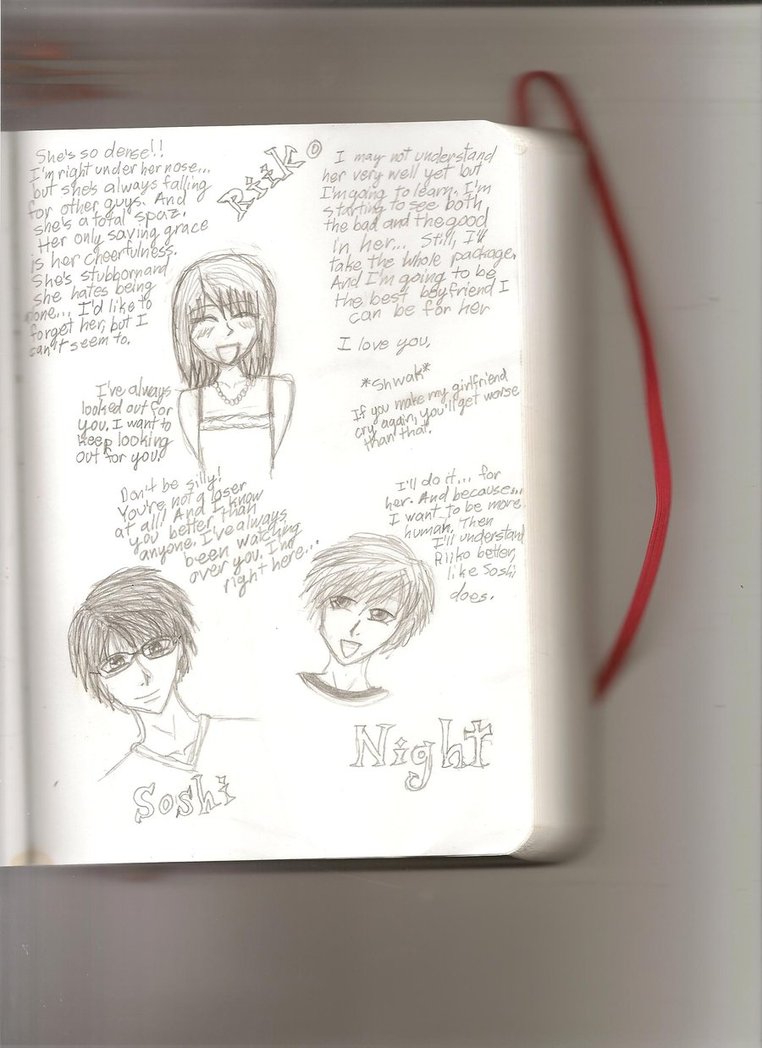 She's so dense!!
I'm right under her nose...
but she's always falling
for other guys. And
she's a total spaz.
Her only saving grace
is her cheerfulness.
She's stubborn and
she hates being
alone... I'd like to
forget her, but I
can't seem to.
I've always
looked out for
you. I want to
keep looking
out for you.
Don't be silly!
You're not a loser
at all! And I know
you better than
anyone. I've always
been watching
over you. I'm
right here...
Soshi
Riiko
I may not understand
her very well yet but
I'm going to learn. I'm
starting to see both
the bad and the good
in her... Still, I'll
take the whole package.
And I'm going to be
the best boyfriend I
can be for her
I love you.
*Shwak*
If you make my girlfriend
cry again, you'll get worse
than that.
I'll do it... for
her. And because...
I want to be more
human. Then
I'll understand
Riiko better,
like Soshi
does.
Night